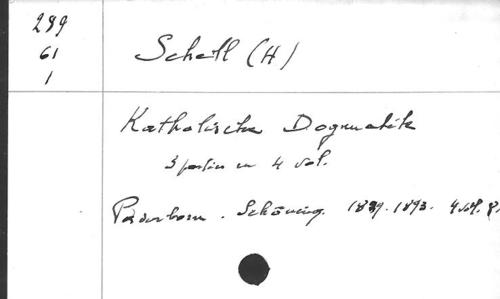 299
61
1
Schell (H)
Katholische Dogmatik
3 parties en 4 vol.
Paderborn. Schöning. 1889-1893. 4 vol. 8.